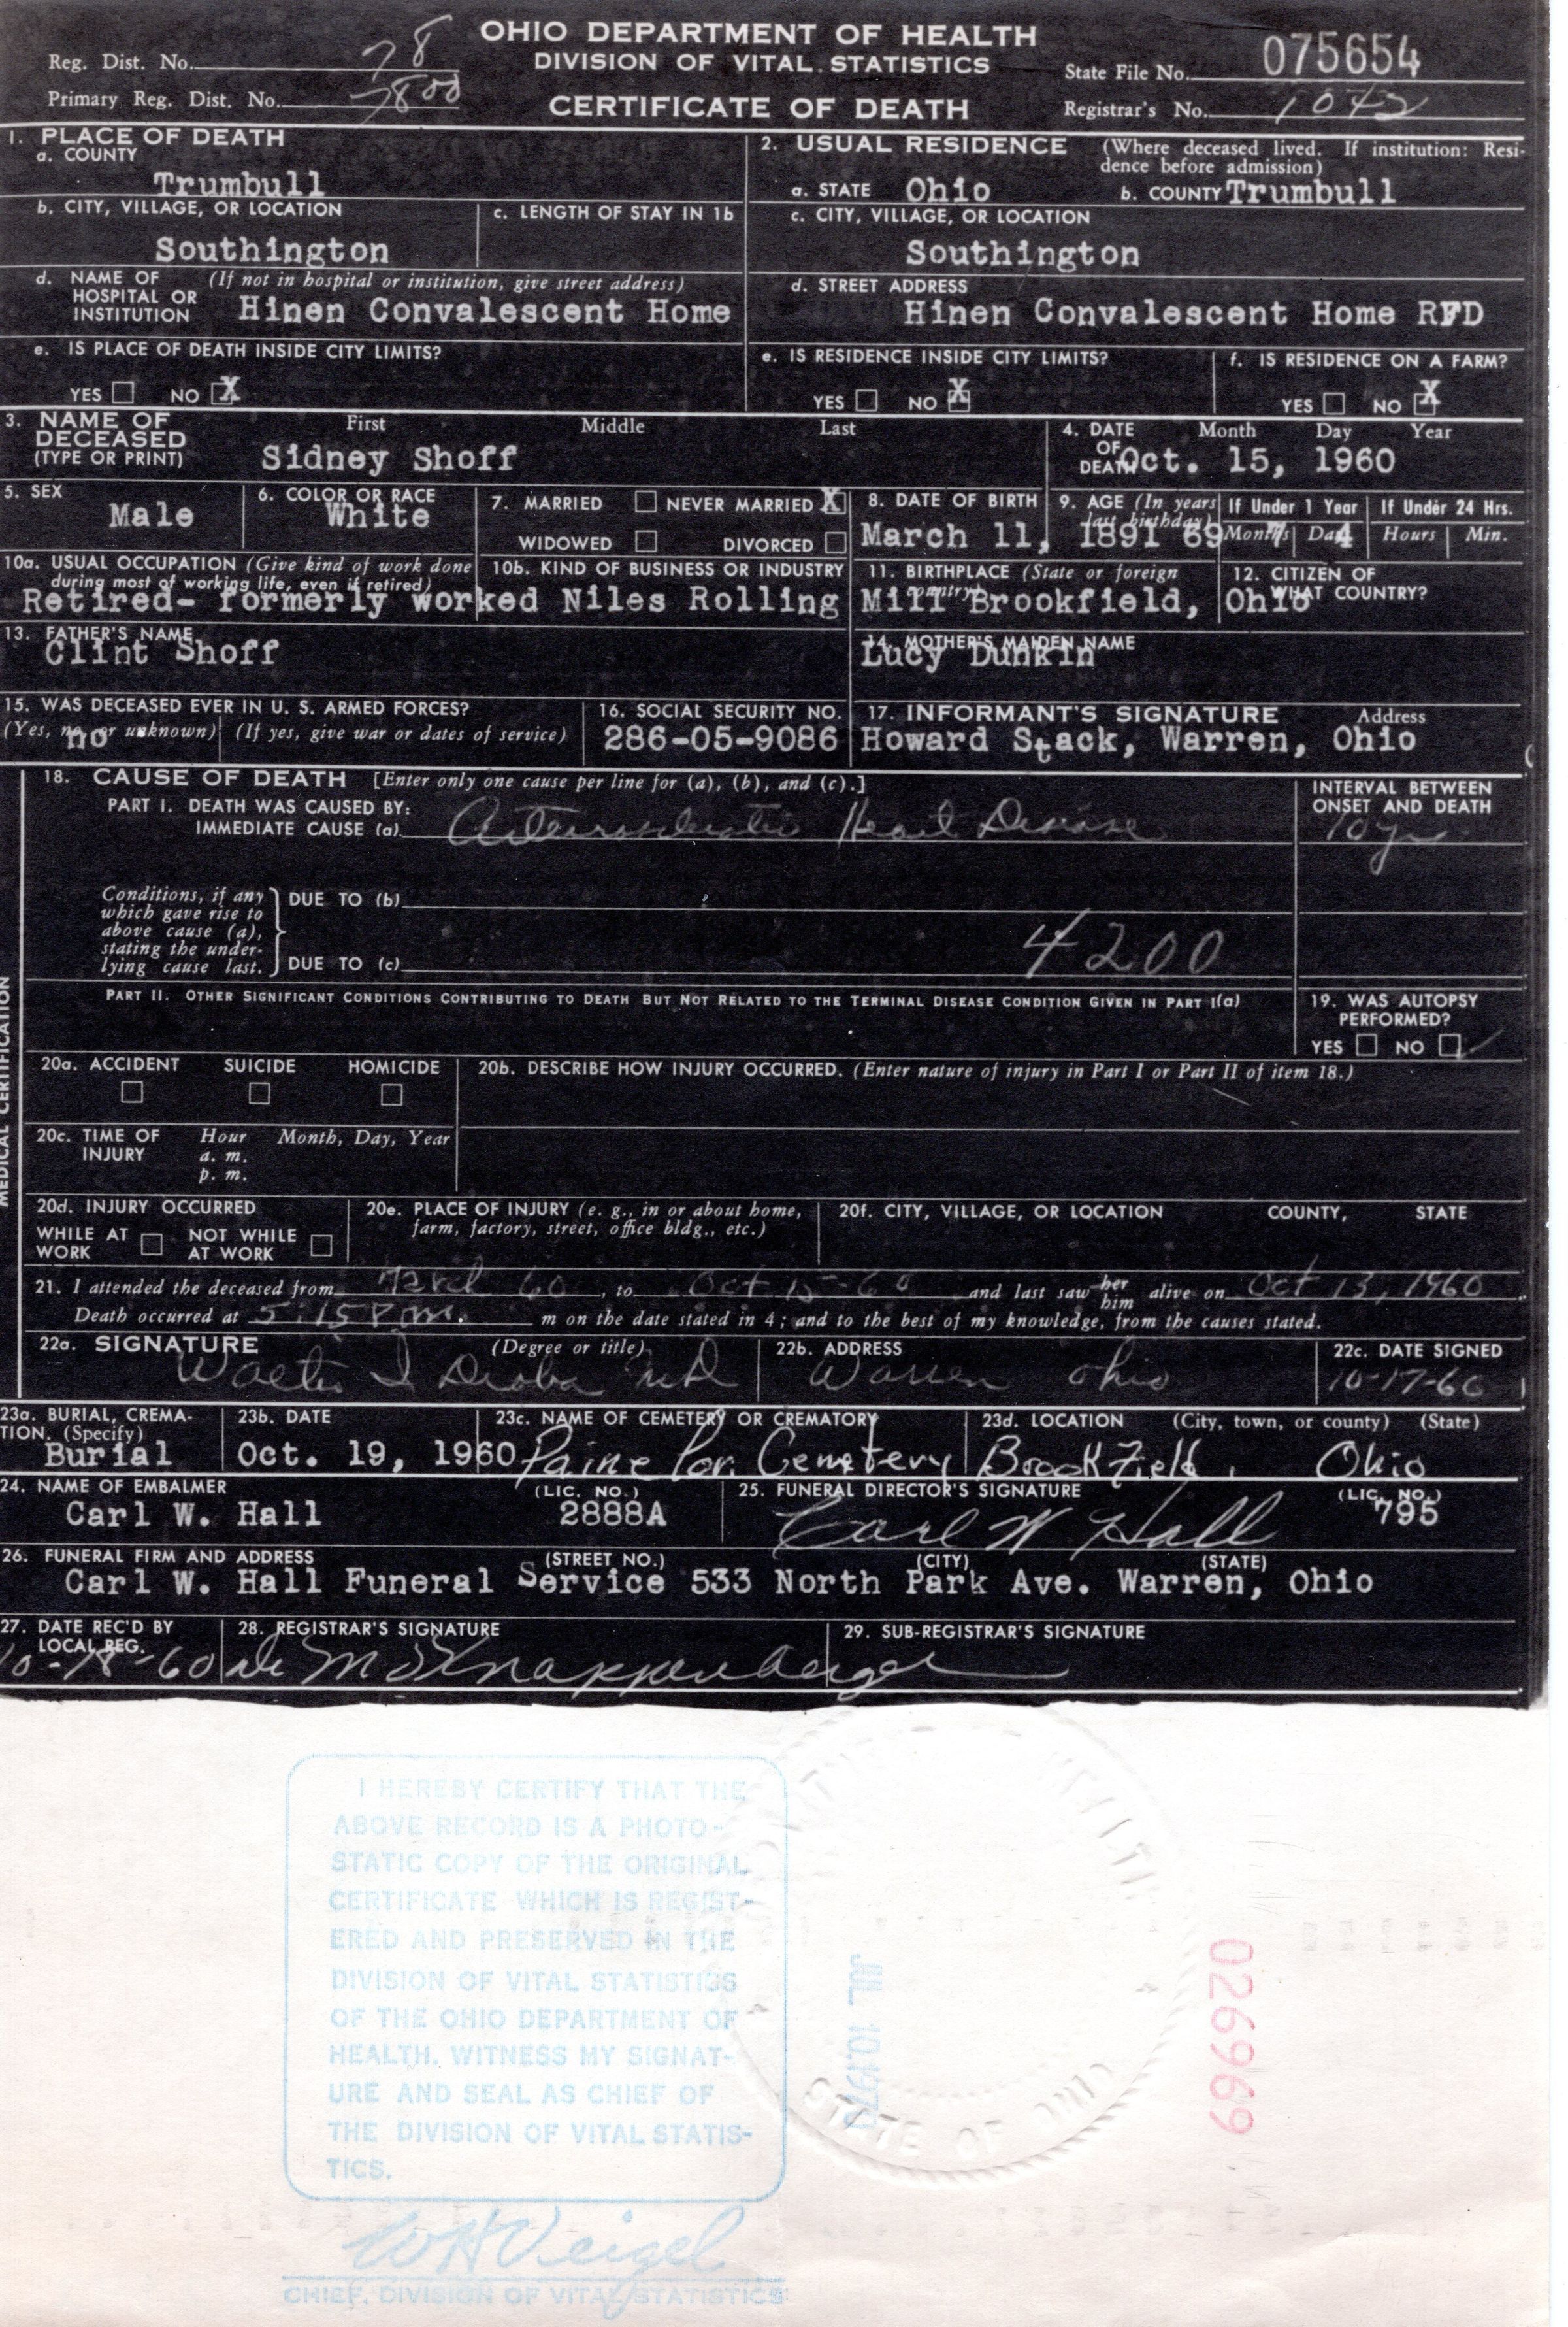 OHIO DEPARTMENT OF HEALTH
DIVISION OF VITAL STATISTICS
CERTIFICATE OF DEATH
Reg. Dist. No. 78
Primary Reg. Dist. No. 7800
State File No. 075654
Registrar's No. 1042
1. PLACE OF DEATH
a. COUNTY
Trumbull
b. CITY, VILLAGE, OR LOCATION
Southington
c. LENGTH OF STAY IN 1b
d. NAME OF HOSPITAL OR INSTITUTION (If not in hospital or institution, give street address)
Hinen Convalescent Home
e. IS PLACE OF DEATH INSIDE CITY LIMITS?
YES NO X
2. USUAL RESIDENCE (Where deceased lived. If institution: Residence before admission)
a. STATE Ohio b. COUNTY Trumbull
c. CITY, VILLAGE, OR LOCATION
Southington
d. STREET ADDRESS
Hinen Convalescent Home RFD
e. IS RESIDENCE INSIDE CITY LIMITS?
YES NO X
f. IS RESIDENCE ON A FARM?
YES NO X
3. NAME OF DECEASED (TYPE OR PRINT) First Middle Last
Sidney Shoff
4. DATE OF DEATH Month Day Year
Oct. 15, 1960
5. SEX
Male
6. COLOR OR RACE
White
7. MARRIED NEVER MARRIED X
WIDOWED DIVORCED
8. DATE OF BIRTH
March 11, 1891
9. AGE (In years last birthday) If Under 1 Year If Under 24 Hrs.
69 Months 7 Days 4 Hours Min.
10a. USUAL OCCUPATION (Give kind of work done during most of working life, even if retired)
10b. KIND OF BUSINESS OR INDUSTRY
Retired- formerly worked Niles Rolling Mill
11. BIRTHPLACE (State or foreign country)
Brookfield, Ohio
12. CITIZEN OF WHAT COUNTRY?
13. FATHER'S NAME
Clint Shoff
14. MOTHER'S MAIDEN NAME
Lucy Dunkin
15. WAS DECEASED EVER IN U. S. ARMED FORCES?
(Yes, no, or unknown) (If yes, give war or dates of service)
no
16. SOCIAL SECURITY NO.
286-05-9086
17. INFORMANT'S SIGNATURE Address
Howard Stack, Warren, Ohio
MEDICAL CERTIFICATION
18. CAUSE OF DEATH [Enter only one cause per line for (a), (b), and (c).]
PART I. DEATH WAS CAUSED BY:
IMMEDIATE CAUSE (a) Arteriosclerotic Heart Disease
INTERVAL BETWEEN ONSET AND DEATH
10 yrs.
Conditions, if any which gave rise to above cause (a), stating the underlying cause last.
DUE TO (b)
DUE TO (c)
4200
PART II. OTHER SIGNIFICANT CONDITIONS CONTRIBUTING TO DEATH BUT NOT RELATED TO THE TERMINAL DISEASE CONDITION GIVEN IN PART I(a)
19. WAS AUTOPSY PERFORMED?
YES NO
20a. ACCIDENT SUICIDE HOMICIDE
20b. DESCRIBE HOW INJURY OCCURRED. (Enter nature of injury in Part I or Part II of item 18.)
20c. TIME OF INJURY Hour Month, Day, Year
a. m.
p. m.
20d. INJURY OCCURRED
WHILE AT WORK NOT WHILE AT WORK
20e. PLACE OF INJURY (e. g., in or about home, farm, factory, street, office bldg., etc.)
20f. CITY, VILLAGE, OR LOCATION COUNTY, STATE
21. I attended the deceased from March 60, to Oct 15-60 and last saw her him alive on Oct 13, 1960.
Death occurred at 5:15 P.m. m on the date stated in 4; and to the best of my knowledge, from the causes stated.
22a. SIGNATURE (Degree or title)
Walter I MD
22b. ADDRESS
Warren Ohio
22c. DATE SIGNED
10-17-60
23a. BURIAL, CREMATION. (Specify)
Burial
23b. DATE
Oct. 19, 1960
23c. NAME OF CEMETERY OR CREMATORY
Paine Cor. Cemetery
23d. LOCATION (City, town, or county) (State)
Brookfield, Ohio
24. NAME OF EMBALMER (LIC. NO.)
Carl W. Hall 2888A
25. FUNERAL DIRECTOR'S SIGNATURE (LIC. NO.)
Carl W Hall 795
26. FUNERAL FIRM AND ADDRESS (STREET NO.) (CITY) (STATE)
Carl W. Hall Funeral Service 533 North Park Ave. Warren, Ohio
27. DATE REC'D BY LOCAL REG.
10-18-60
28. REGISTRAR'S SIGNATURE
Knappenberger
29. SUB-REGISTRAR'S SIGNATURE
I HEREBY CERTIFY THAT THE
ABOVE RECORD IS A PHOTO-
STATIC COPY OF THE ORIGINAL
CERTIFICATE WHICH IS REGIST-
ERED AND PRESERVED IN THE
DIVISION OF VITAL STATISTICS
OF THE OHIO DEPARTMENT OF
HEALTH. WITNESS MY SIGNAT-
URE AND SEAL AS CHIEF OF
THE DIVISION OF VITAL STATIS-
TICS.
WH Veigel
CHIEF, DIVISION OF VITAL STATISTICS
STATE OF OHIO
026969